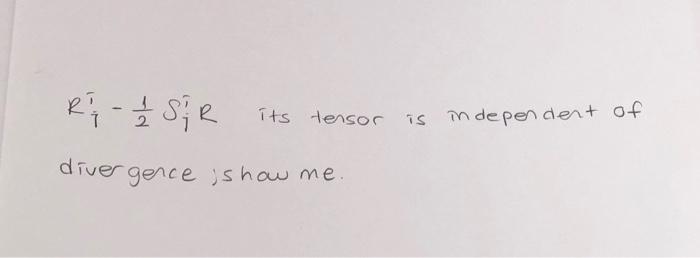 R^i_j - 1/2 S^i_j R its tensor is independent of
divergence ; show me.